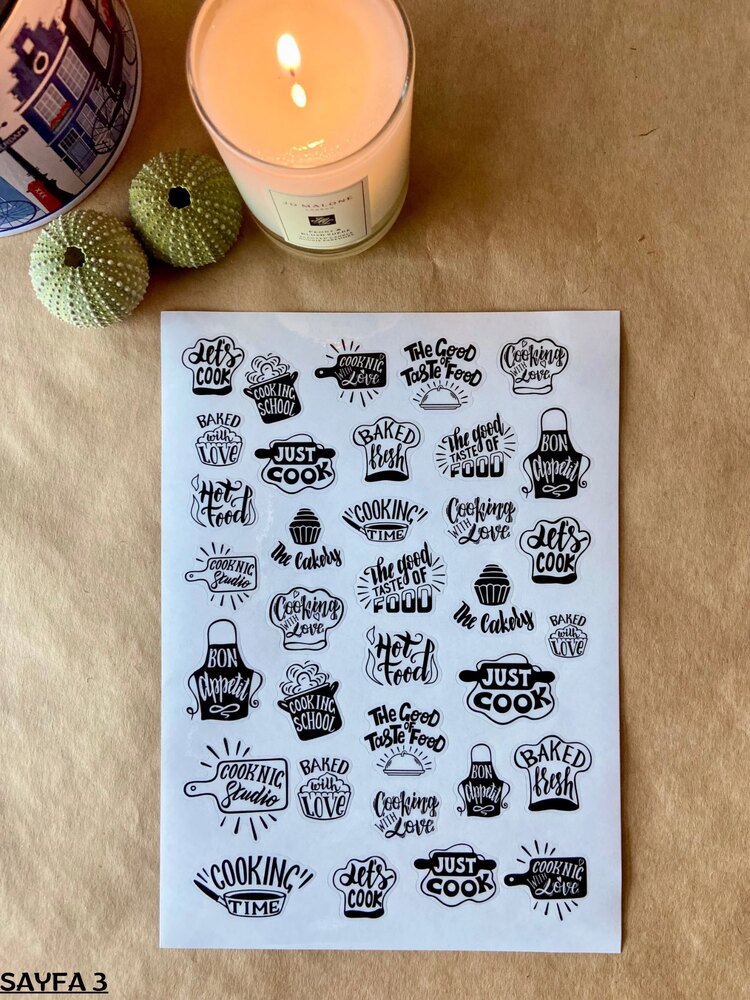 JO MALONE
LONDON
Let's
COOK
COOKING
SCHOOL
COOKNIG
WITH
Love
THe Good
OF
TaSTe Food
Cooking
WITH
Love
BAKED
with
LOVE
JUST
COOK
BAKED
fresh
The good
TASTED OF
FOOD
BON
Appetit
Hot
Food
The Cakery
COOKING
TIME
Cooking
WITH
Love
Let's
COOK
COOKNIG
Studio
The good
TASTED OF
FOOD
The Cakery
Cooking
WITH
Love
BAKED
with
LOVE
BON
Appetit
Hot
Food
COOKING
SCHOOL
JUST
COOK
THe Good
OF
TaSTe Food
COOKNIG
Studio
BAKED
with
LOVE
BON
Appetit
BAKED
fresh
Cooking
WITH
Love
COOKING
TIME
Let's
COOK
JUST
COOK
COOKNIG
WITH
Love
SAYFA 3